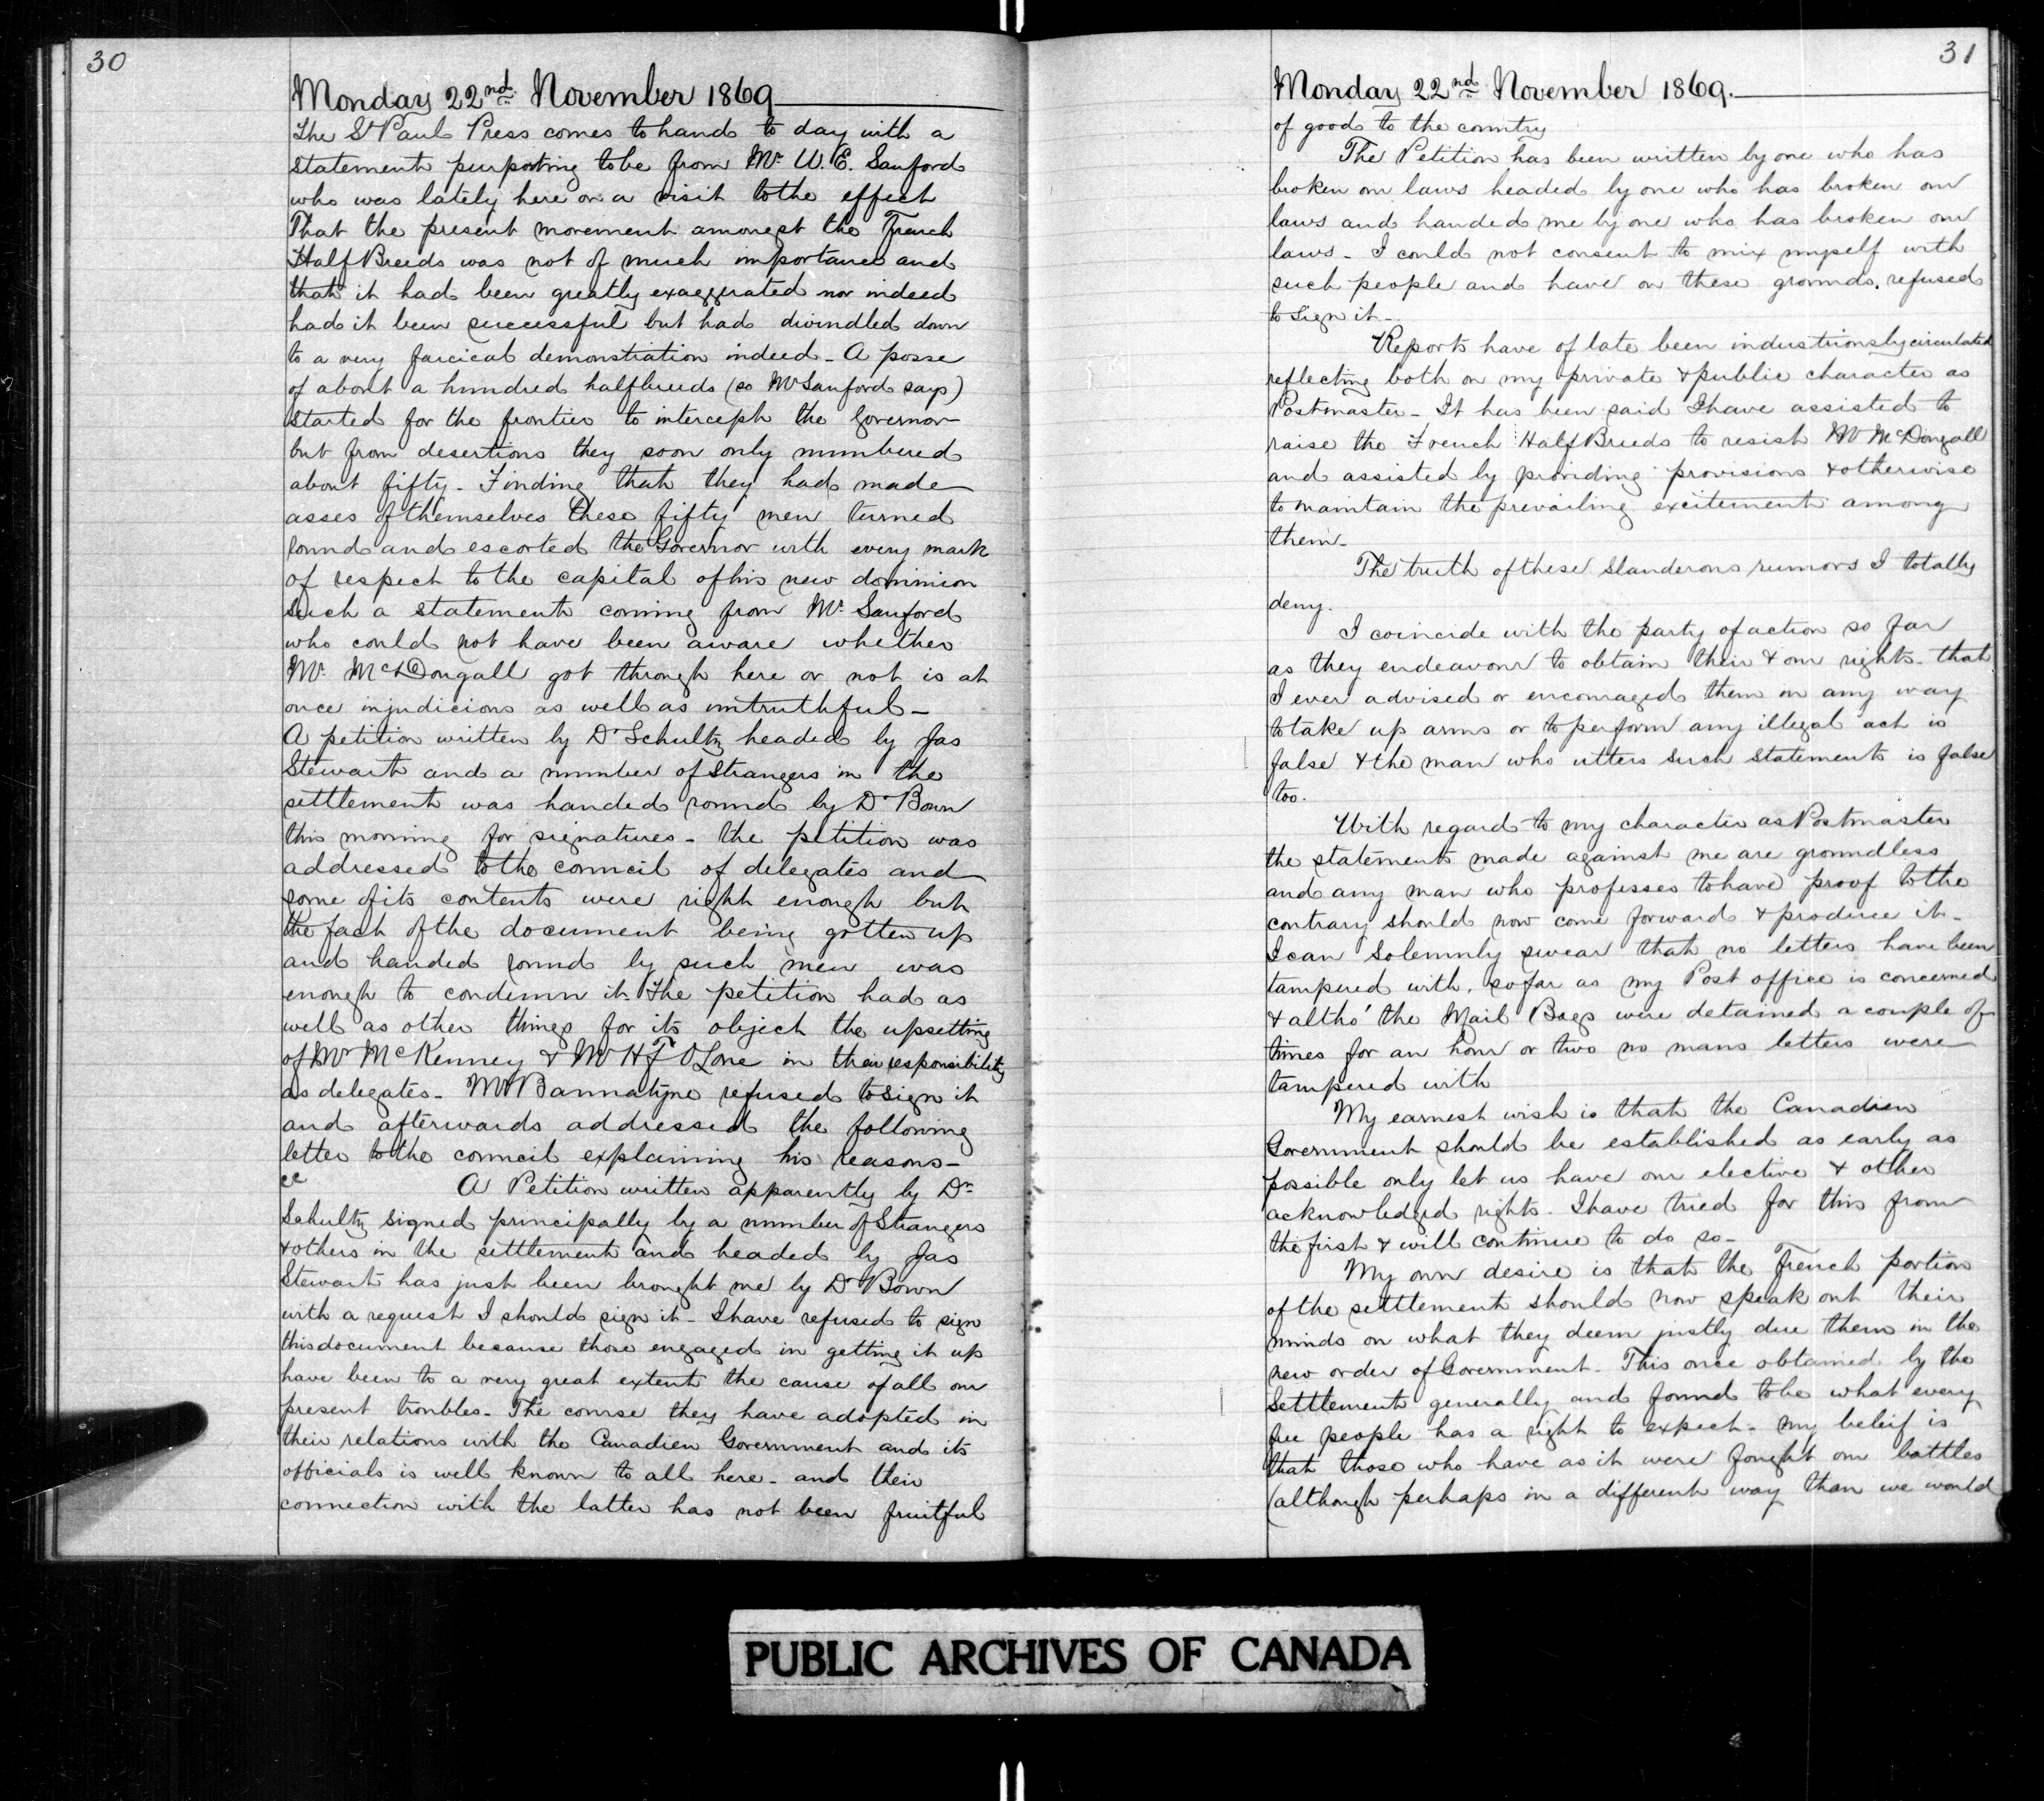 30
Monday 22nd November 1869
The St Paul Press comes to hand to day with a
statement purporting to be from Mr W. E. Sanford
who was lately here on a visit to the effect
That the present movement amongst the French
Half Breeds was not of much importance and
that it had been greatly exaggerated nor indeed
had it been successful but had dwindled down
to a very farcical demonstration indeed - A posse
of about a hundred halfbreeds (so Mr Sanford says)
started for the frontier to intercept the Governor
but from desertions they soon only numbered
about fifty - Finding that they had made
asses of themselves these fifty men turned
round and escorted the Governor with every mark
of respect to the capital of his new dominion
Such a statement coming from Mr. Sanford
who could not have been aware whether
Mr. McDougall got through here or not is at
once injudicious as well as untruthful -
A petition written by Dr Schultz headed by Jas
Stewart and a number of Strangers in the
settlement was handed round by Dr Bown
this morning for signatures - the petition was
addressed to the council of delegates and
some of its contents were right enough but
the fact of the document being gotten up
and handed round by such men was
enough to condemn it. The petition had as
well as other things for its object the upsetting
of Mr McKenney & Mr H F O'Lone in their responsibility
as delegates - Mr Bannatyne refused to sign it
and afterwards addressed the following
letter to the council explaining his reasons -
" A Petition written apparently by Dr.
Schultz signed principally by a number of Strangers
& others in the settlement and headed by Jas
Stewart has just been brought me by Dr Bown
with a request I should sign it - I have refused to sign
this document because those engaged in getting it up
have been to a very great extent the cause of all our
present troubles - The course they have adopted in
their relations with the Canadien Government and its
officials is well known to all here - and their
connection with the latter has not been fruitful
31
Monday 22nd November 1869.
of good to the country
The Petition has been written by one who has
broken our laws headed by one who has broken our
laws and handed me by one who has broken our
laws - I could not consent to mix myself with
such people and have on these grounds, refused
to sign it -
Reports have of late been industriously circulated
reflecting both on my private & public character as
Postmaster - It has been said I have assisted to
raise the French Half Breeds to resist Mr McDougall
and assisted by providing provisions & otherwise
to maintain the prevailing excitement among
them -
The truth of these slanderous rumors I totally
deny.
I coincide with the party of action so far
as they endeavour to obtain their & our rights - that
I ever advised or encouraged them in any way
to take up arms or to perform any illegal act is
false & the man who utters such statements is false
too.
With regard to my character as Postmaster
the statements made against me are groundless
and any man who professes to have proof to the
contrary should now come forward & produce it -
I can solemnly swear that no letters have been
tampered with, so far as my Post office is concerned
& altho' the Mail Bags were detained a couple of
times for an hour or two no mans letters were
tampered with
My earnest wish is that the Canadien
Government should be established as early as
possible only let us have our elective & other
acknowledged rights - I have tried for this from
the first & will continue to do so -
My own desire is that the French portion
of the settlement should now speak out their
minds on what they deem justly due them in the
new order of Government - This once obtained by the
Settlement generally and found to be what every
free people has a right to expect - my beleif is
that those who have as it were fought our battles
(although perhaps in a different way than we would
PUBLIC ARCHIVES OF CANADA